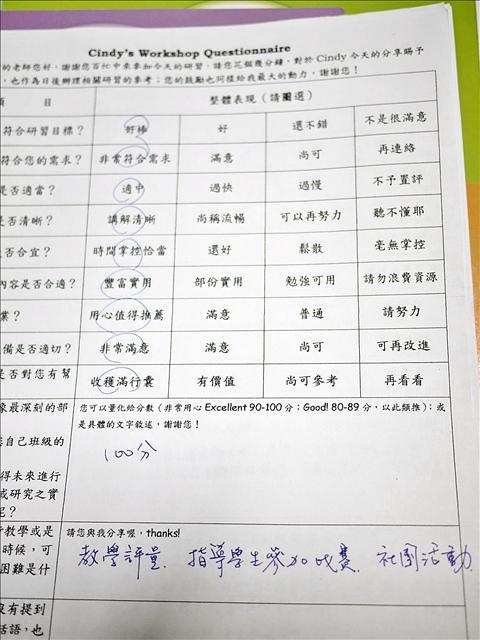 Cindy's Workshop Questionnaire
的老師您好，謝謝您百忙中來參加今天的研習，請您花個幾分鐘，對於 Cindy 今天的分享賜予
，也作為日後辦理相關研習的參考；您的鼓勵也同樣給我最大的動力，謝謝您！
項 目 整體表現（請圈選）
符合研習目標？ 好棒 好 還不錯 不是很滿意
符合您的需求？ 非常符合需求 滿意 尚可 再連絡
是否適當？ 適中 過快 過慢 不予置評
是否清晰？ 講解清晰 尚稱流暢 可以再努力 聽不懂耶
否合宜？ 時間掌控恰當 還好 鬆散 毫無掌控
內容是否合適？ 豐富實用 部份實用 勉強可用 請勿浪費資源
業？ 用心值得推薦 滿意 普通 請努力
備是否適切？ 非常滿意 滿意 尚可 可再改進
是否對您有幫 收穫滿行囊 有價值 尚可參考 再看看
像最深刻的部 您可以量化給分數（非常用心 Excellent 90-100 分；Good! 80-89 分，以此類推）；或
是具體的文字敘述，謝謝您！
自己班級的
100分
得未來進行
或研究之實
呢？
教學或是 請您與我分享喔，thanks!
時候，可
困難是什
教學評量. 指導學生參加比賽. 社團活動.
沒有提到
話語，也